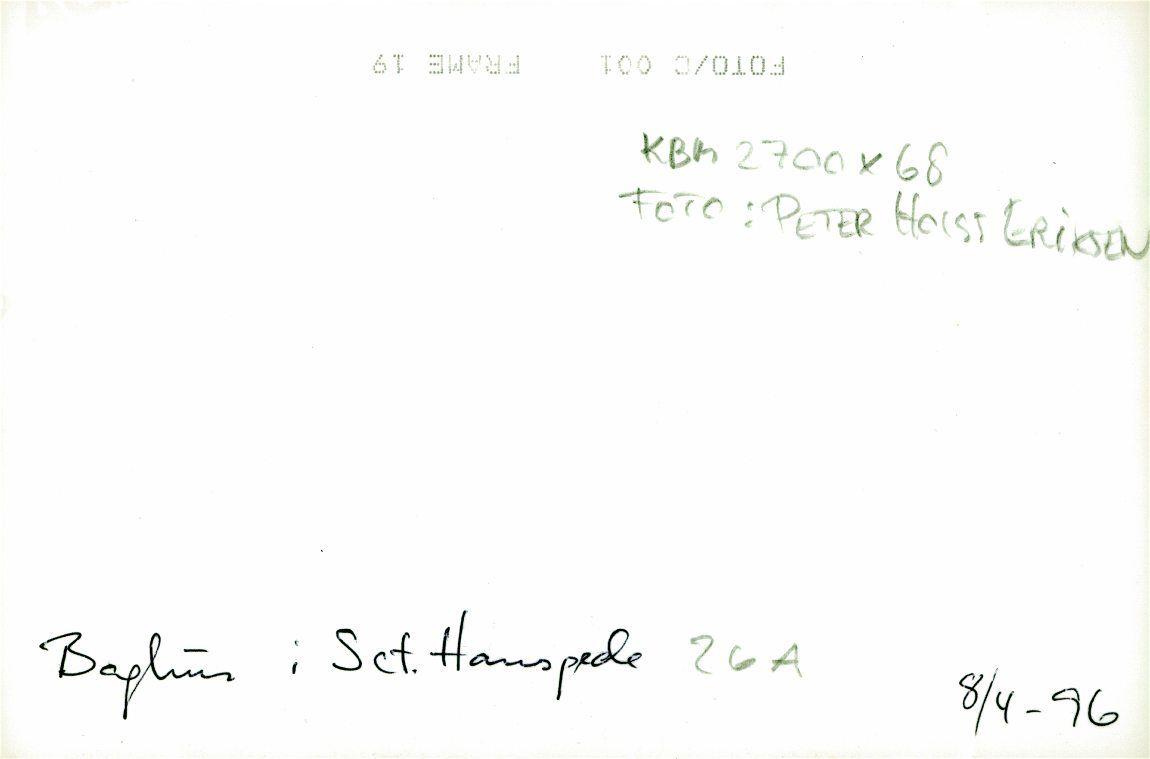 FOTO/C 001 FRAME 19
KBM 2700 x 68
FOTO : PETER HOLST ERIKSEN
Baghus i Sct. Hanspede 26 A
8/4-96